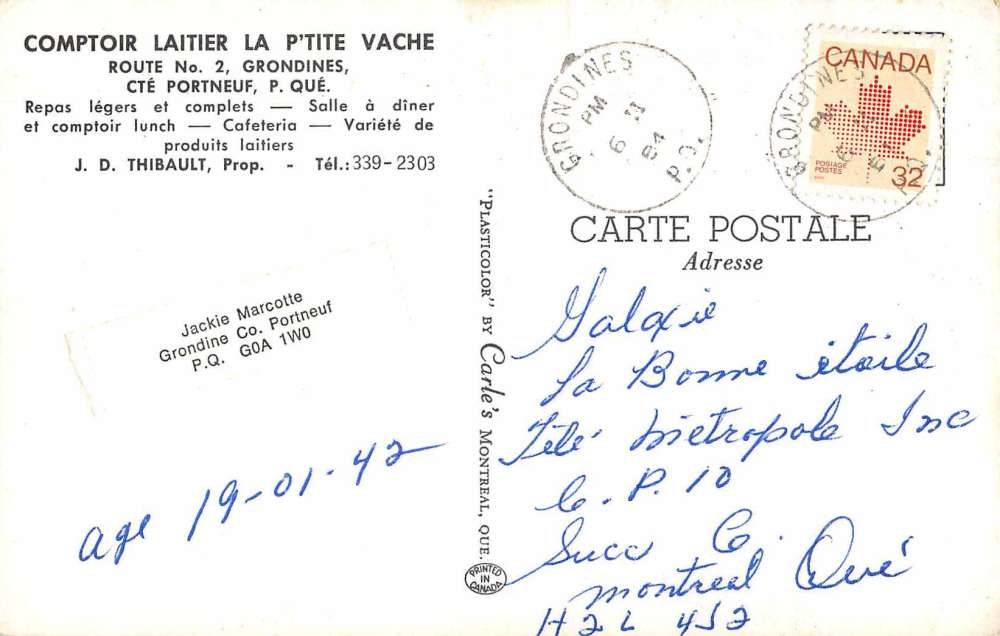 COMPTOIR LAITIER LA P'TITE VACHE
ROUTE No. 2, GRONDINES,
CTÉ PORTNEUF, P. QUÉ.
Repas légers et complets — Salle à dîner
et comptoir lunch — Cafeteria — Variété de
produits laitiers
J. D. THIBAULT, Prop. - Tél.: 339-2303
Jackie Marcotte
Grondine Co. Portneuf
P.Q. G0A 1W0
age 19-01-42
"PLASTICOLOR" BY Carle's MONTREAL, QUE.
PRINTED
IN
CANADA
GRONDINES
PM
6 II
84
P.Q.
GRONDINES
PM
6
P.Q.
CANADA
POSTAGE
POSTES
32
CARTE POSTALE
Adresse
Galaxie
La Bonne étoile
Télé Métropole Inc
C.P. 10
Succ C.
Montreal Qué
H2L 4J2